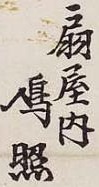 扇屋内
鳰照